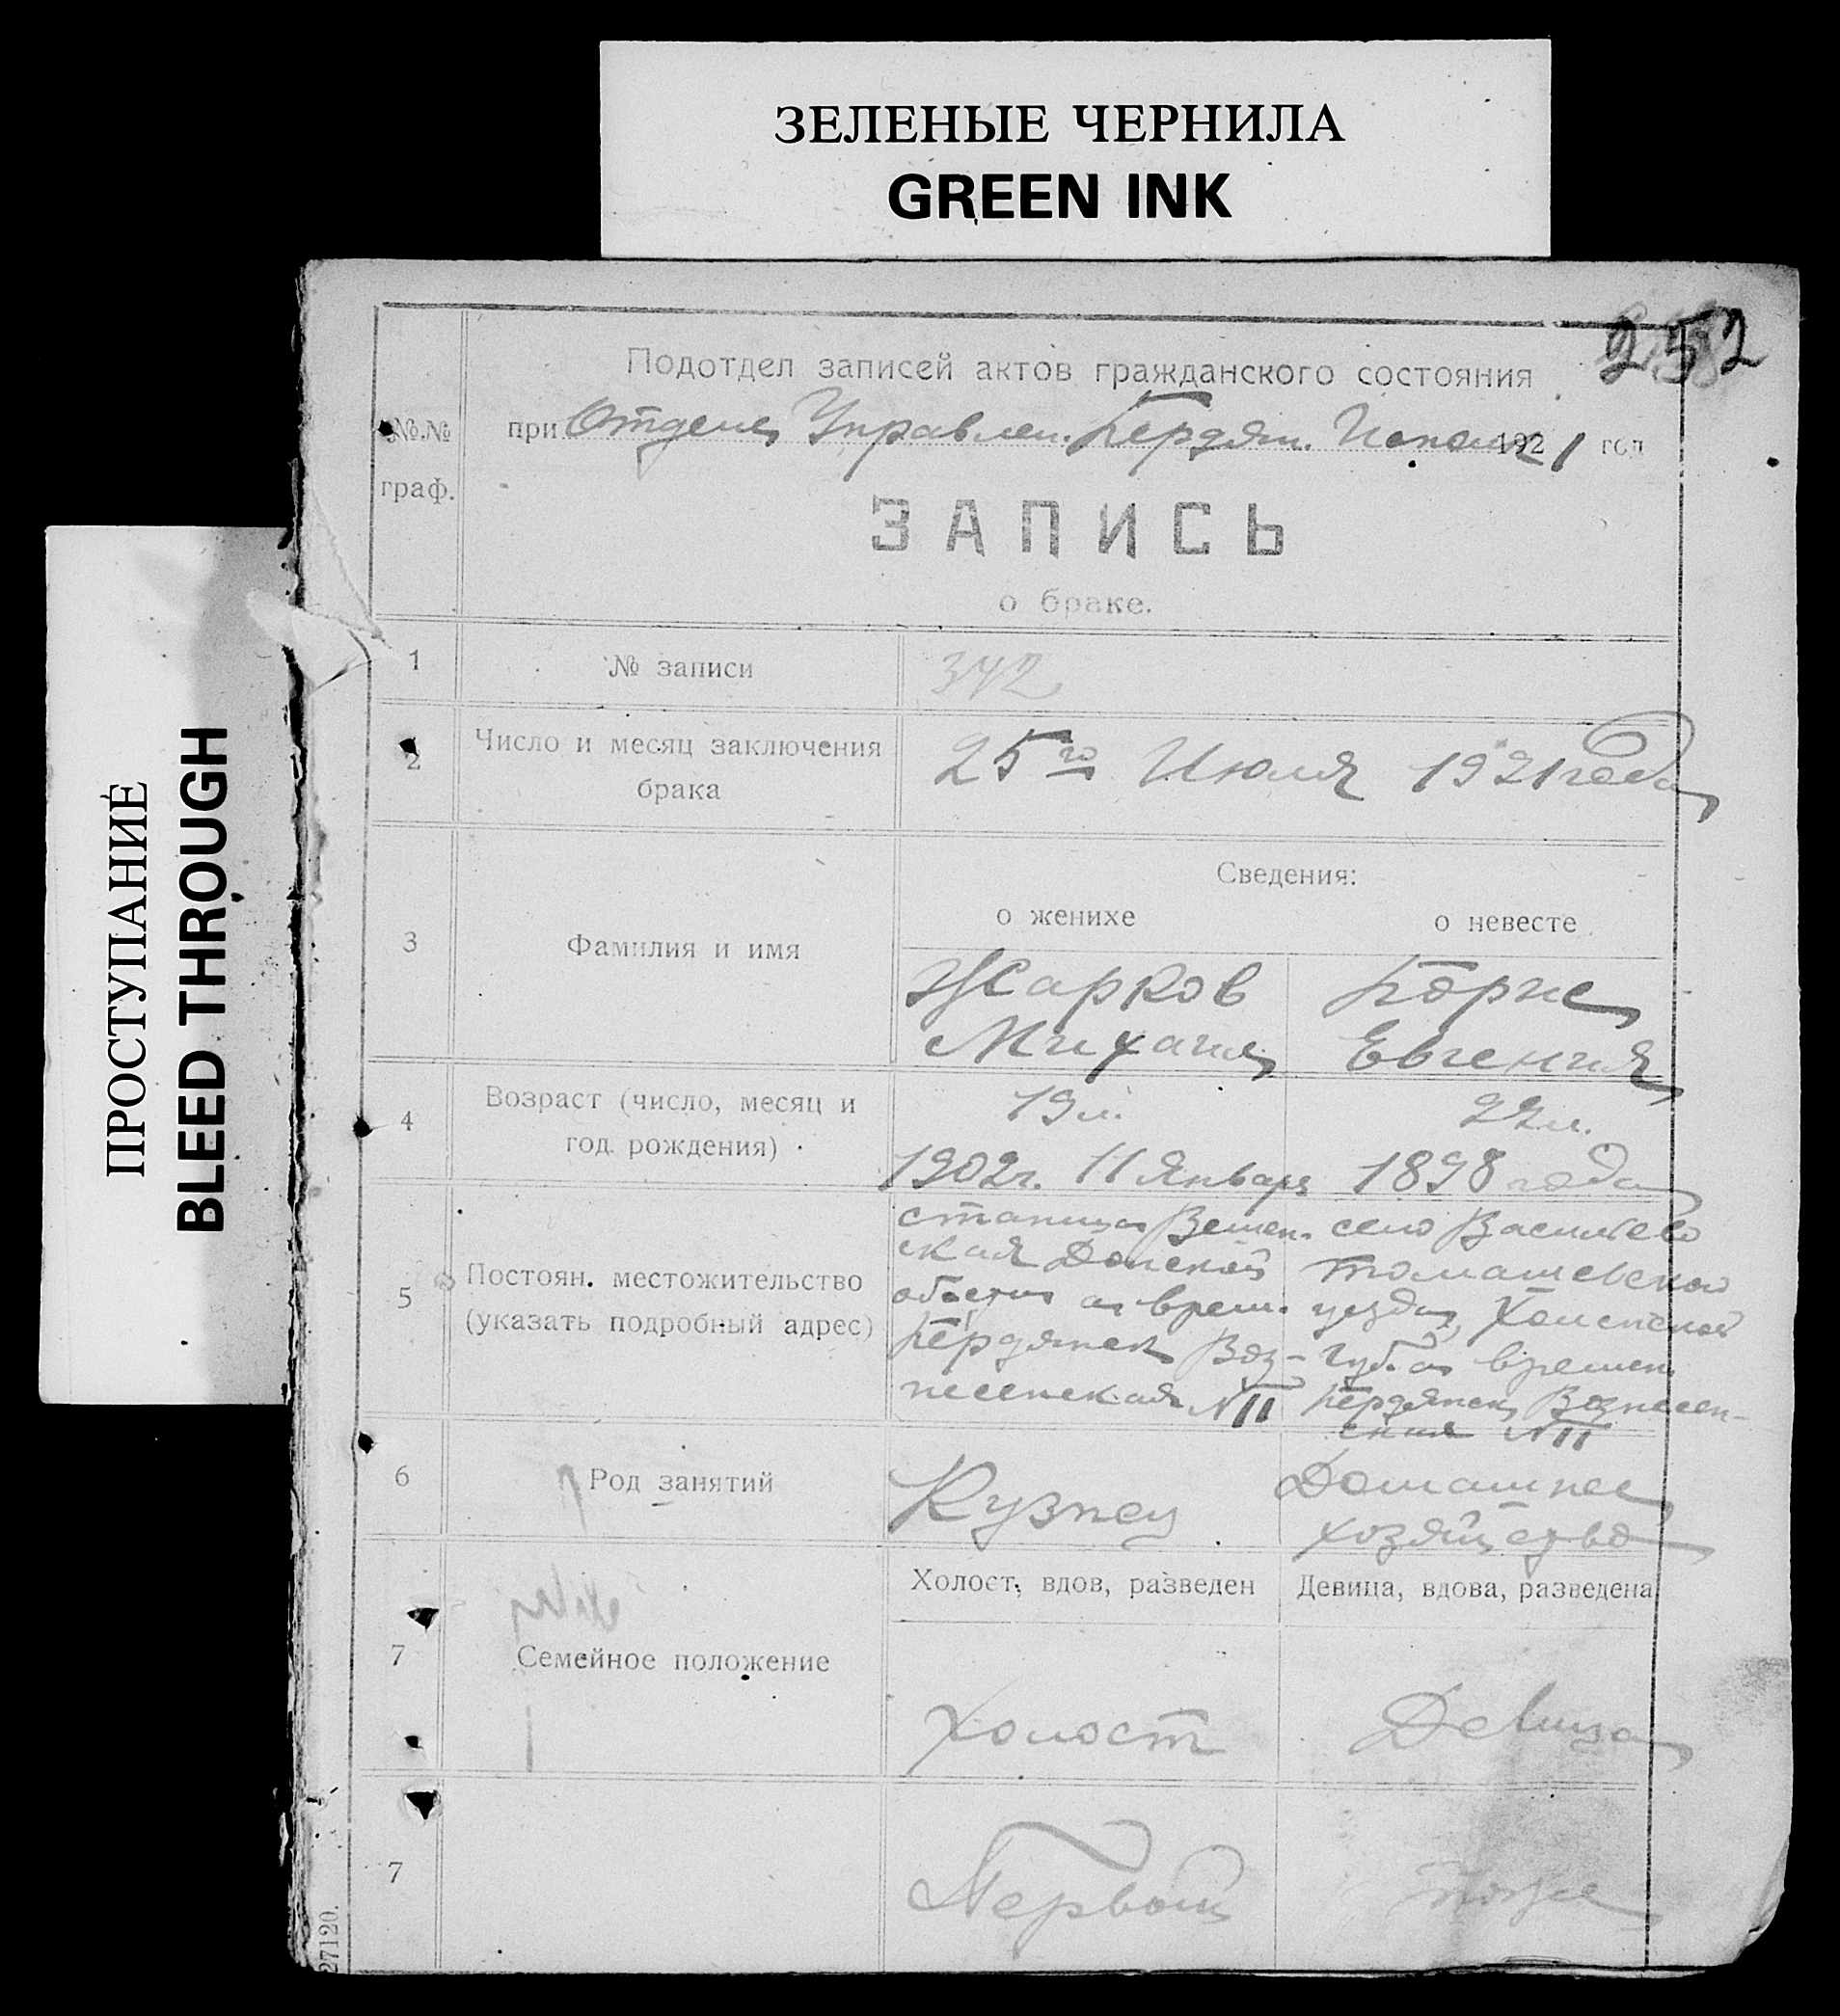 ЗЕЛЕНЫЕ ЧЕРНИЛА
GREEN INK
ПРОСТУПАНИЕ
BLEED THROUGH
252
№.№ граф.
Подотдел записей актов гражданского состояния
при Отделе Управлен. Бердян. Исполк 1921 год
ЗАПИСЬ
о браке.
1 № записи 342
2 Число и месяц заключения брака
25го Июля 1921 года
Сведения:
о женихе о невесте
3 Фамилия и имя
Жарков Борне
Михаил Евгения
4 Возраст (число, месяц и год рождения)
19 л. 22 л.
1902г. 11 Января 1898 года
5 Постоян. местожительство
(указать подробный адрес)
станица Вешен-
ская Донской
области а врем.
Бердянск Воз-
несенская N 11
село Васильево
Томашевского
уезда, Холмской
губ. а времен.
Бердянск Вознесен-
ская N 11
6 Род занятий
Кузнец
Домашнее
хозяйство
Холост, вдов, разведен Девица, вдова, разведена
7 Семейное положение
Холост Девица
7
Первый тоже
27120.